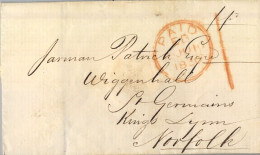 PAID
Jarman Patrick Esqre
Wiggenhall
St Germains
Kings Lynn
Norfolk